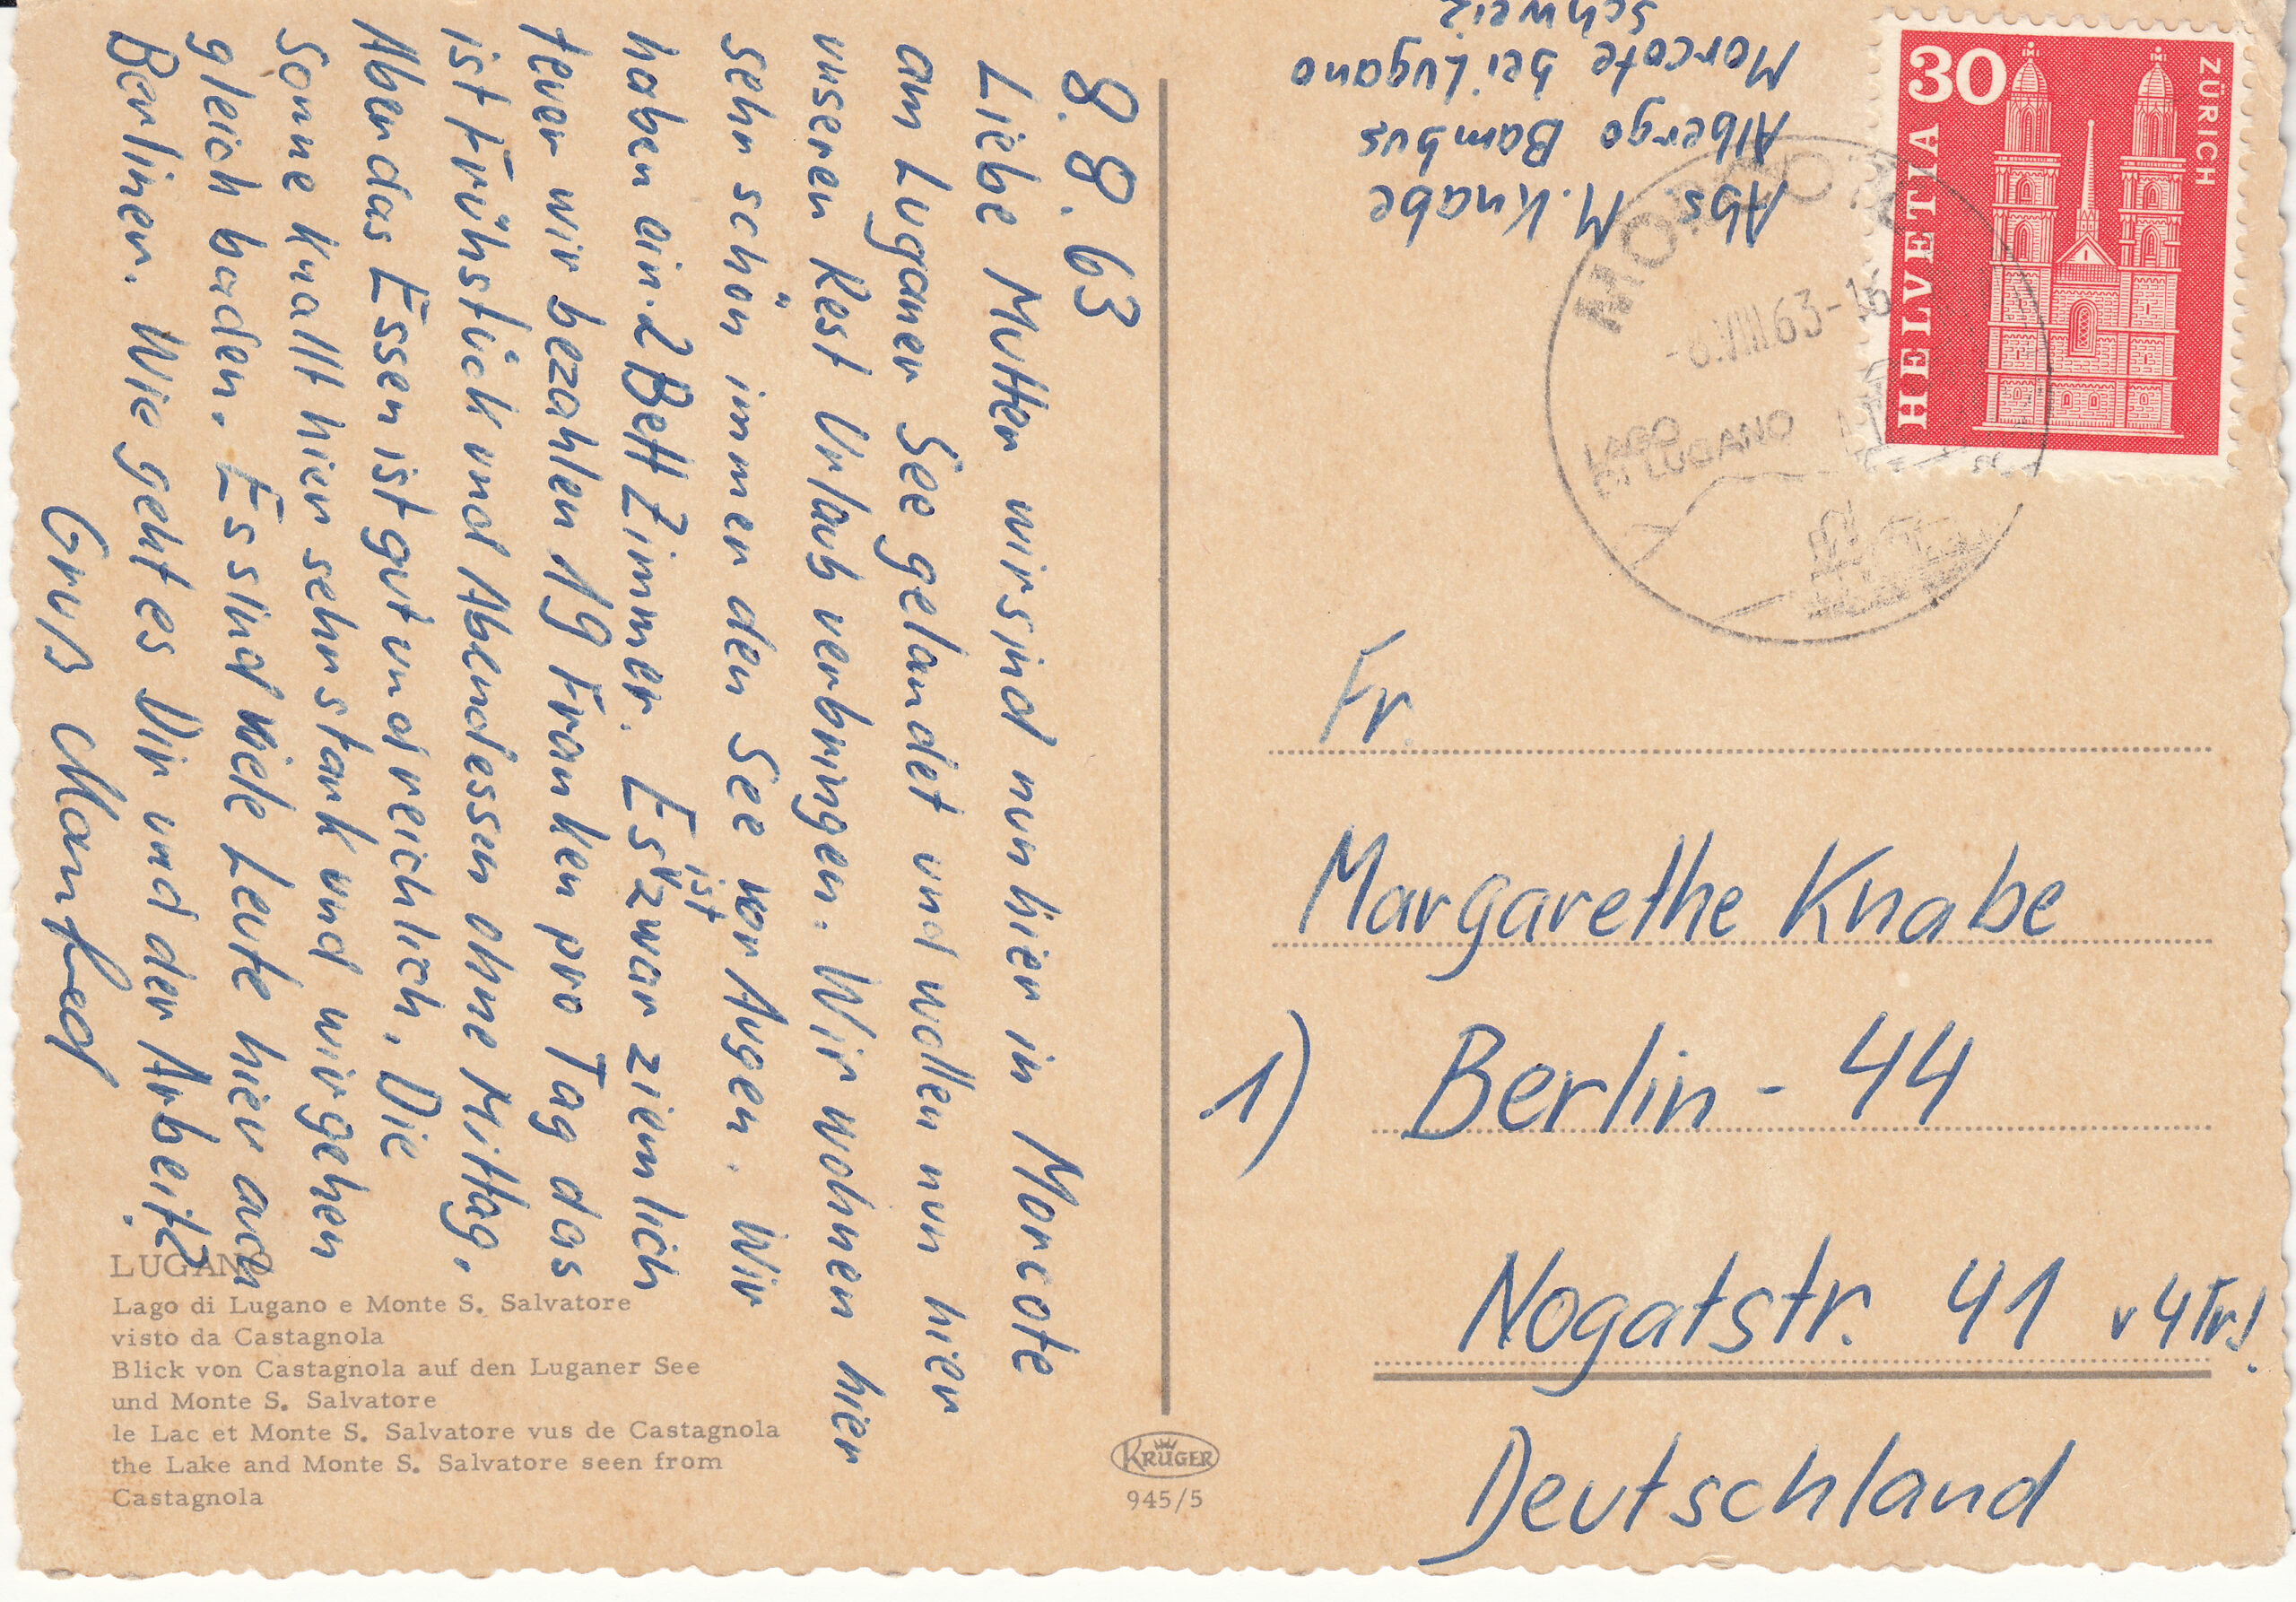 8.8.63
Liebe Mutter wir sind nun hier in Morcote
am Luganer See gelandet und wollen nun hier
unseren Rest Urlaub verbringen. Wir wohnen hier
sehr schön immer den See vor Augen. Wir
haben ein 2 Bett Zimmer. Es ist zwar ziemlich
teuer wir bezahlen 19 Franken pro Tag das
ist Frühstück und Abendessen ohne Mittag.
Aber das Essen ist gut und reichlich. Die
Sonne knallt hier sehr stark und wir gehen
gleich baden. Es sind viele Leute hier auch
Berliner. Wie geht es Dir und der Arbeit?
Gruß Manfred
LUGANO
Lago di Lugano e Monte S. Salvatore
visto da Castagnola
Blick von Castagnola auf den Luganer See
und Monte S. Salvatore
le Lac et Monte S. Salvatore vus de Castagnola
the Lake and Monte S. Salvatore seen from
Castagnola
KRÜGER
945/5
Abs M. Knabe
Albergo Bambus
Morcote bei Lugano
Schweiz
30
HELVETIA
ZÜRICH
VIII 63-
LAGO
DI LUGANO
Fr.
Margarethe Knabe
1) Berlin - 44
Nogatstr. 41 v 4Tr!
Deutschland